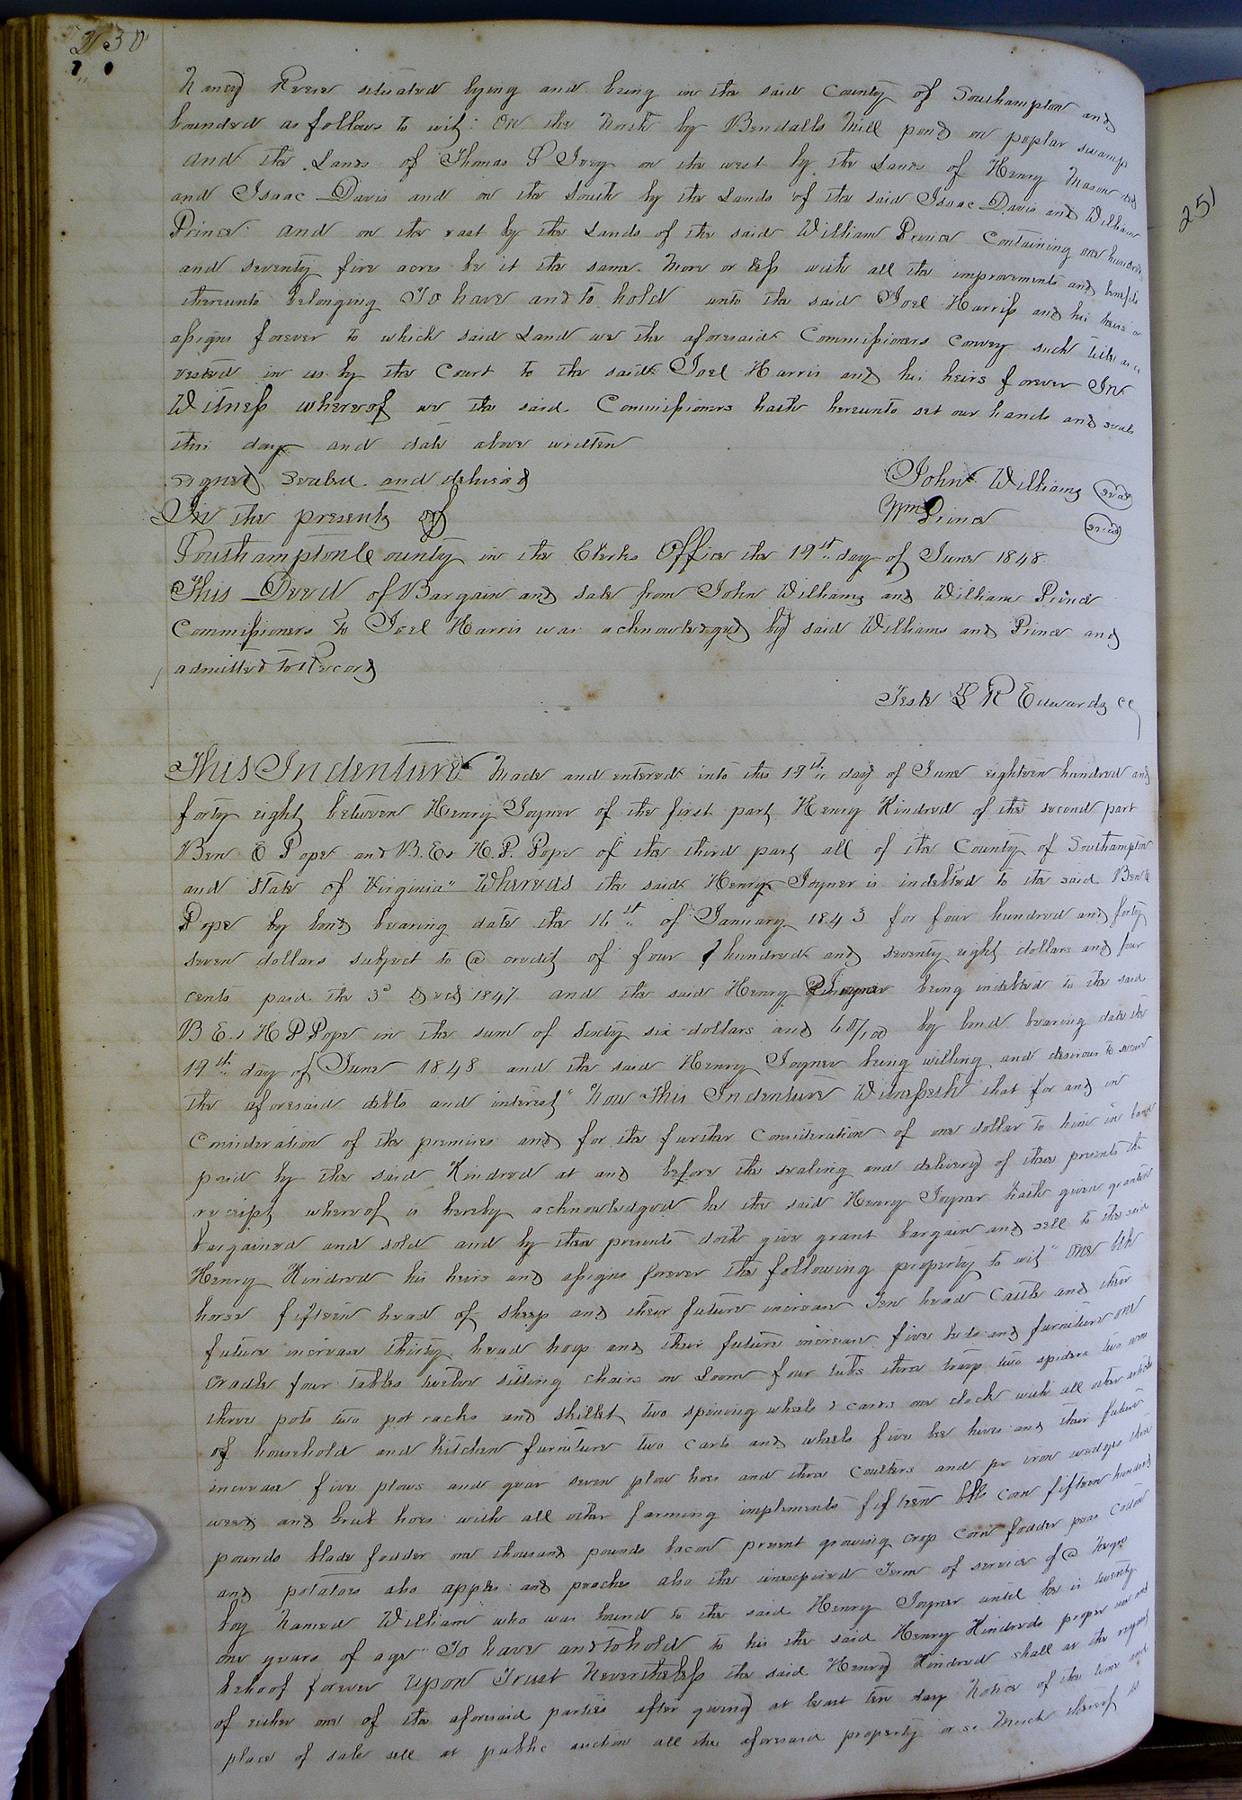 230
Nancy Revese situated lying and being in the said County of Southampton and
bounded as follows to wit: On the North by Bendalls Mill pond on poplar swamp
and the Lands of Thomas P Ivey on the west by the Lands of Henry Mason
and Isaac Davis and on the South by the Lands of the said Isaac Davis and William
Prince and on the east by the Lands of the said William Prince Containing one hundred
and seventy five acres be it the same More or less with all the improvements and benefits
thereunto belonging To have and to hold unto the said Joel Harriss and his heirs or
assigns forever to which said Land we the aforesaid Commissioners Convey such title as is
vested in us by the Court to the said Joel Harris and his heirs forever In
Witness whereof we the said Commissioners hath hereunto set our hands and seals
this day and date above written
signed sealed and delivered
John Williams (seal)
In the presents of
Wm Prince (seal)
Southampton County in the Clerks Office the 19st day of June 1848
This Deed of Bargain and sale from John Williams and William Prince
Commissioners to Joel Harris was acknowledged by said Williams and Prince and
admitted to Record
Teste L R Edwards CC
This Indenture Made and entered into this 19st day of June eighteen hundred and
forty eight between Henry Joyner of the first part Henry Kindred of the second part
Ben E Pope and B. E & H. P. Pope of the third part all of the County of Southampton
and State of Virginia" Whereas the said Henry Joyner is indebted to the said Ben E
Pope by bond bearing date the 16st of January 1843 for four hundred and forty
seven dollars subject to @ credit of four hundred and seventy eight dollars and four
cents paid the 3d Decd 1847 and the said Henry Joyner being indebted to the said
B E & H P Pope in the sum of Sixty six dollars and 68/100 by bond bearing date the
19st day of June 1848 and the said Henry Joyner being willing and desirous to secure
the aforesaid debts and interest" Now This Indenture Witnesseth that for and in
Consideration of the premises and for the further Consideration of one dollar to him in hand
paid by the said Kindred at and before the sealing and delivery of these presents the
receipt whereof is hereby acknowledged he the said Henry Joyner hath given granted
bargained and sold and by these presents doth give grant bargain and sell to the said
Henry Kindred his heirs and assigns forever the following property to wit" One blk
horse fifteen head of sheep and their future increase Ten head Cattle and their
future increase thirty head hogs and their future increase five beds and furniture one
cradle four tables twelve sitting chairs on Loom four tubs three trays two spiders two
three pots two pot racks and skillet two spinning wheels & cards one clock with all other articles
of household and kitchen furniture two carts and wheels five bee hives and their future
increase five plows and gear seven plow hoes and three Coulters and pr iron wedges three
weed and Grub hoes with all other farming implements fifteen bbls corn fifteen hundred
pounds blade fodder one thousand pounds bacon present growing crop Corn fodder peas Cotton
and potatoes also apples and peaches also the unexpired Term of service of @ Negro
boy Named William who was bound to the said Henry Joyner until he is twenty
one years of age" To have and to hold to his the said Henry Kindreds proper use and
behoof forever Upon Trust Nevertheless the said Henry Kindred shall at the request
of either one of the aforesaid parties after giving at least ten days Notice of the time and
place of sale sell at public auction all the aforesaid property or so Much thereof as
251